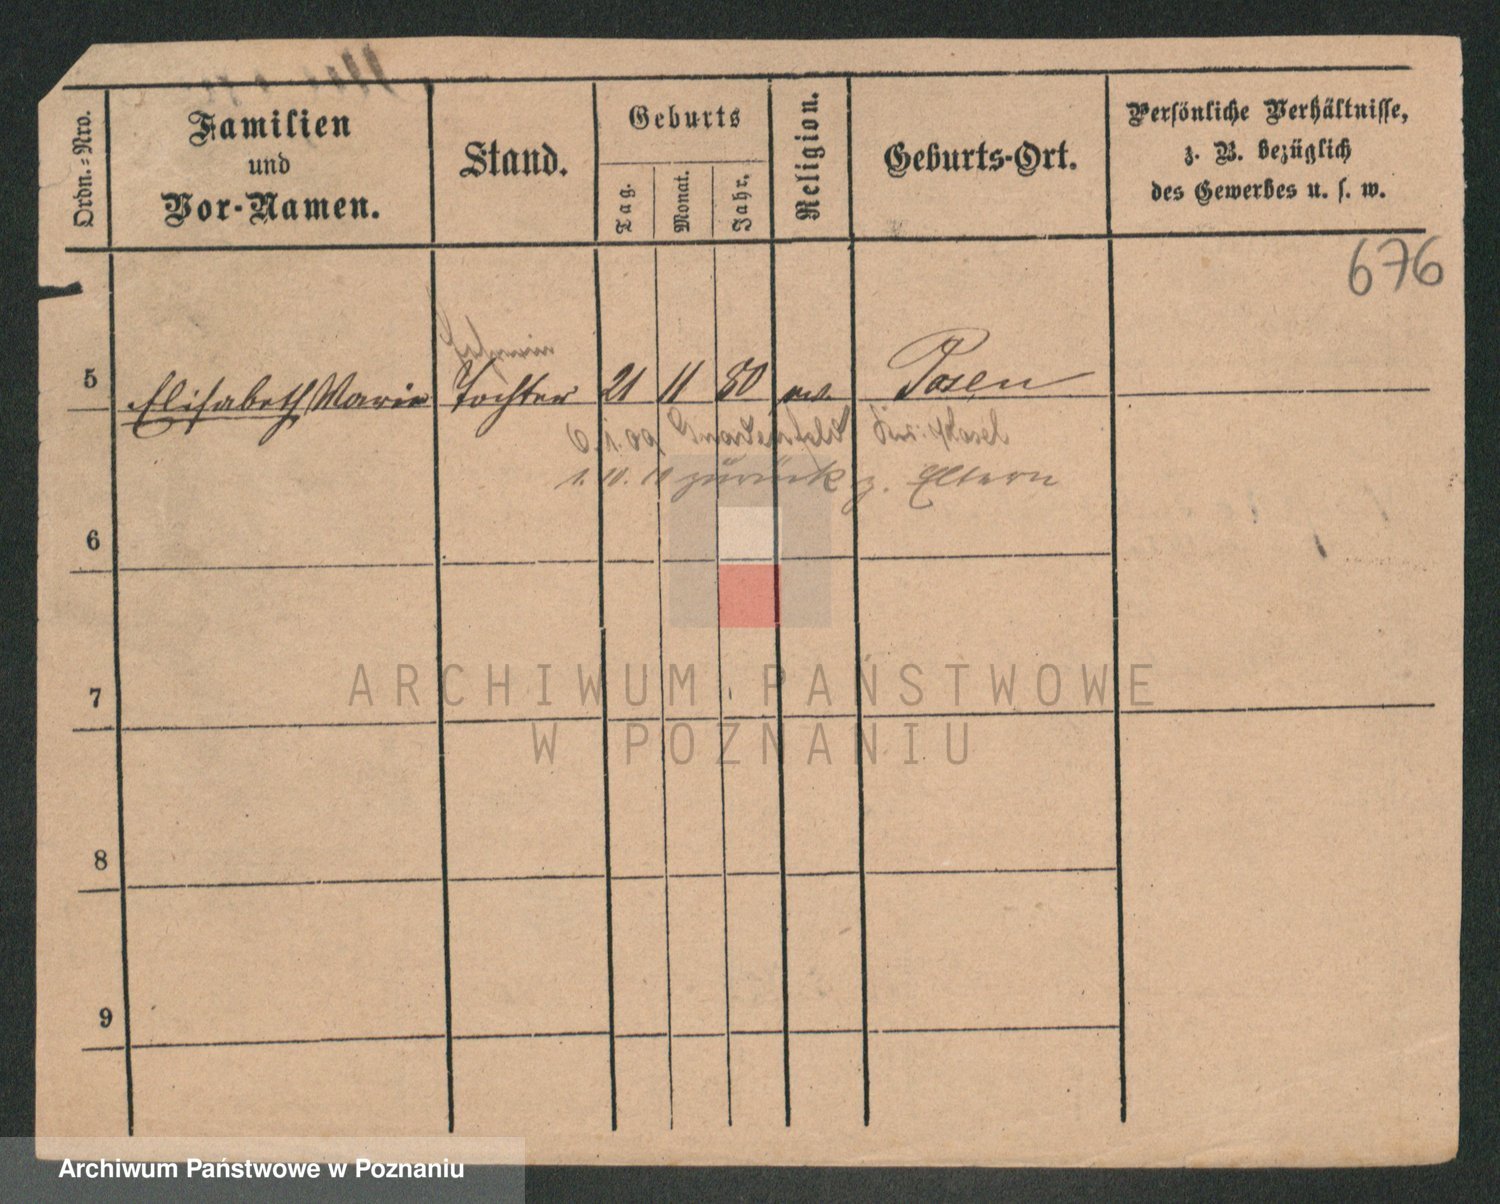 Ordn.=Nro.
Familien
und
Vor-Namen.
Stand.
Geburts
Tag.
Monat.
Jahr.
Religion.
Geburts-Ort.
Persönliche Verhältnisse,
z. B. bezüglich
des Gewerbes u. s. w.
676
5 Elisabeth Marie Tochter 21 11 80 ev. Posen
1. 10. 10 zurück z. Eltern
6
7
8
9
ARCHIWUM PAŃSTWOWE
W POZNANIU
Archiwum Państwowe w Poznaniu